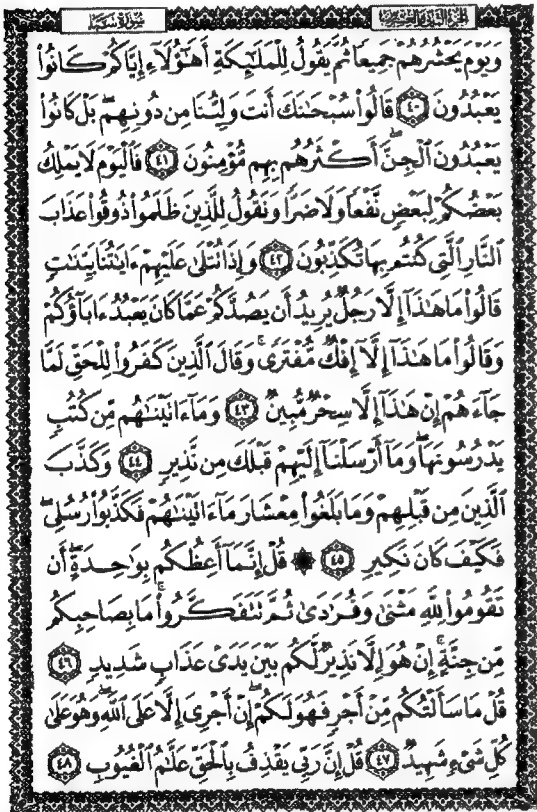 سُورَةُ سَبَإٍ
الجُزْءُ الثَّانِي وَالعِشْرُونَ
وَيَوْمَ يَحْشُرُهُمْ جَمِيعًا ثُمَّ يَقُولُ لِلْمَلَٰٓئِكَةِ أَهَٰٓؤُلَآءِ إِيَّاكُمْ كَانُوا۟
يَعْبُدُونَ ٤٠ قَالُوا۟ سُبْحَٰنَكَ أَنتَ وَلِيُّنَا مِن دُونِهِم ۖ بَلْ كَانُوا۟
يَعْبُدُونَ ٱلْجِنَّ ۖ أَكْثَرُهُم بِهِم مُّؤْمِنُونَ ٤١ فَٱلْيَوْمَ لَا يَمْلِكُ
بَعْضُكُمْ لِبَعْضٍ نَّفْعًا وَلَا ضَرًّا وَنَقُولُ لِلَّذِينَ ظَلَمُوا۟ ذُوقُوا۟ عَذَابَ
ٱلنَّارِ ٱلَّتِى كُنتُم بِهَا تُكَذِّبُونَ ٤٢ وَإِذَا تُتْلَىٰ عَلَيْهِمْ ءَايَٰتُنَا بَيِّنَٰتٍ
قَالُوا۟ مَا هَٰذَآ إِلَّا رَجُلٌ يُرِيدُ أَن يَصُدَّكُمْ عَمَّا كَانَ يَعْبُدُ ءَابَآؤُكُمْ
وَقَالُوا۟ مَا هَٰذَآ إِلَّآ إِفْكٌ مُّفْتَرًى ۚ وَقَالَ ٱلَّذِينَ كَفَرُوا۟ لِلْحَقِّ لَمَّا
جَآءَهُمْ إِنْ هَٰذَآ إِلَّا سِحْرٌ مُّبِينٌ ٤٣ وَمَآ ءَاتَيْنَٰهُم مِّن كُتُبٍ
يَدْرُسُونَهَا ۖ وَمَآ أَرْسَلْنَآ إِلَيْهِمْ قَبْلَكَ مِن نَّذِيرٍ ٤٤ وَكَذَّبَ
ٱلَّذِينَ مِن قَبْلِهِمْ وَمَا بَلَغُوا۟ مِعْشَارَ مَآ ءَاتَيْنَٰهُمْ فَكَذَّبُوا۟ رُسُلِى ۖ
فَكَيْفَ كَانَ نَكِيرِ ٤٥ ۞ قُلْ إِنَّمَآ أَعِظُكُم بِوَٰحِدَةٍ ۖ أَن
تَقُومُوا۟ لِلَّهِ مَثْنَىٰ وَفُرَٰدَىٰ ثُمَّ تَتَفَكَّرُوا۟ ۚ مَا بِصَاحِبِكُم
مِّن جِنَّةٍ ۚ إِنْ هُوَ إِلَّا نَذِيرٌ لَّكُم بَيْنَ يَدَىْ عَذَابٍ شَدِيدٍ ٤٦
قُلْ مَا سَأَلْتُكُم مِّنْ أَجْرٍ فَهُوَ لَكُمْ ۖ إِنْ أَجْرِىَ إِلَّا عَلَى ٱللَّهِ ۖ وَهُوَ عَلَىٰ
كُلِّ شَىْءٍ شَهِيدٌ ٤٧ قُلْ إِنَّ رَبِّى يَقْذِفُ بِٱلْحَقِّ عَلَّٰمُ ٱلْغُيُوبِ ٤٨